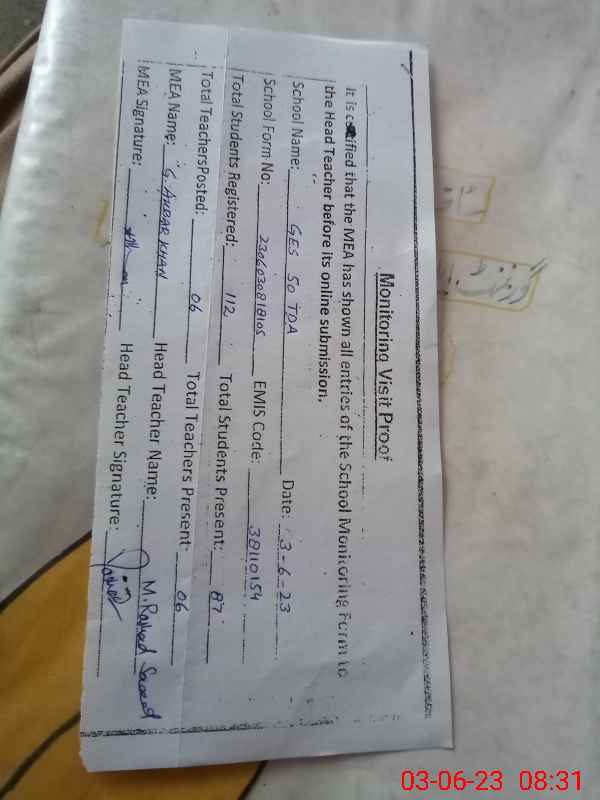 Monitoring Visit Proof
It is certified that the MEA has shown all entries of the School Monitoring Form to
the Head Teacher before its online submission.
School Name: GES 50 TDA Date: 3-6-23
School Form No: EMIS Code: 38110154
Total Students Registered: 112 Total Students Present: 87
Total TeachersPosted: 06 Total Teachers Present: 06
MEA Name: G. AKBAR KHAN Head Teacher Name: M. Rashed Saeed
MEA Signature: Head Teacher Signature:
گورنمنٹ
03-06-23 08:31